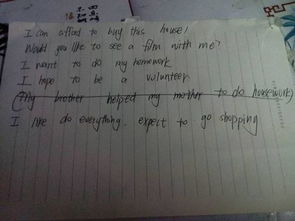 I can afford to buy this house!
Would you like to see a film with me?
I want to do my homework
I hope to be a volunteer
(My brother helped my mother to do housework)
I like do everything. expect to go shopping